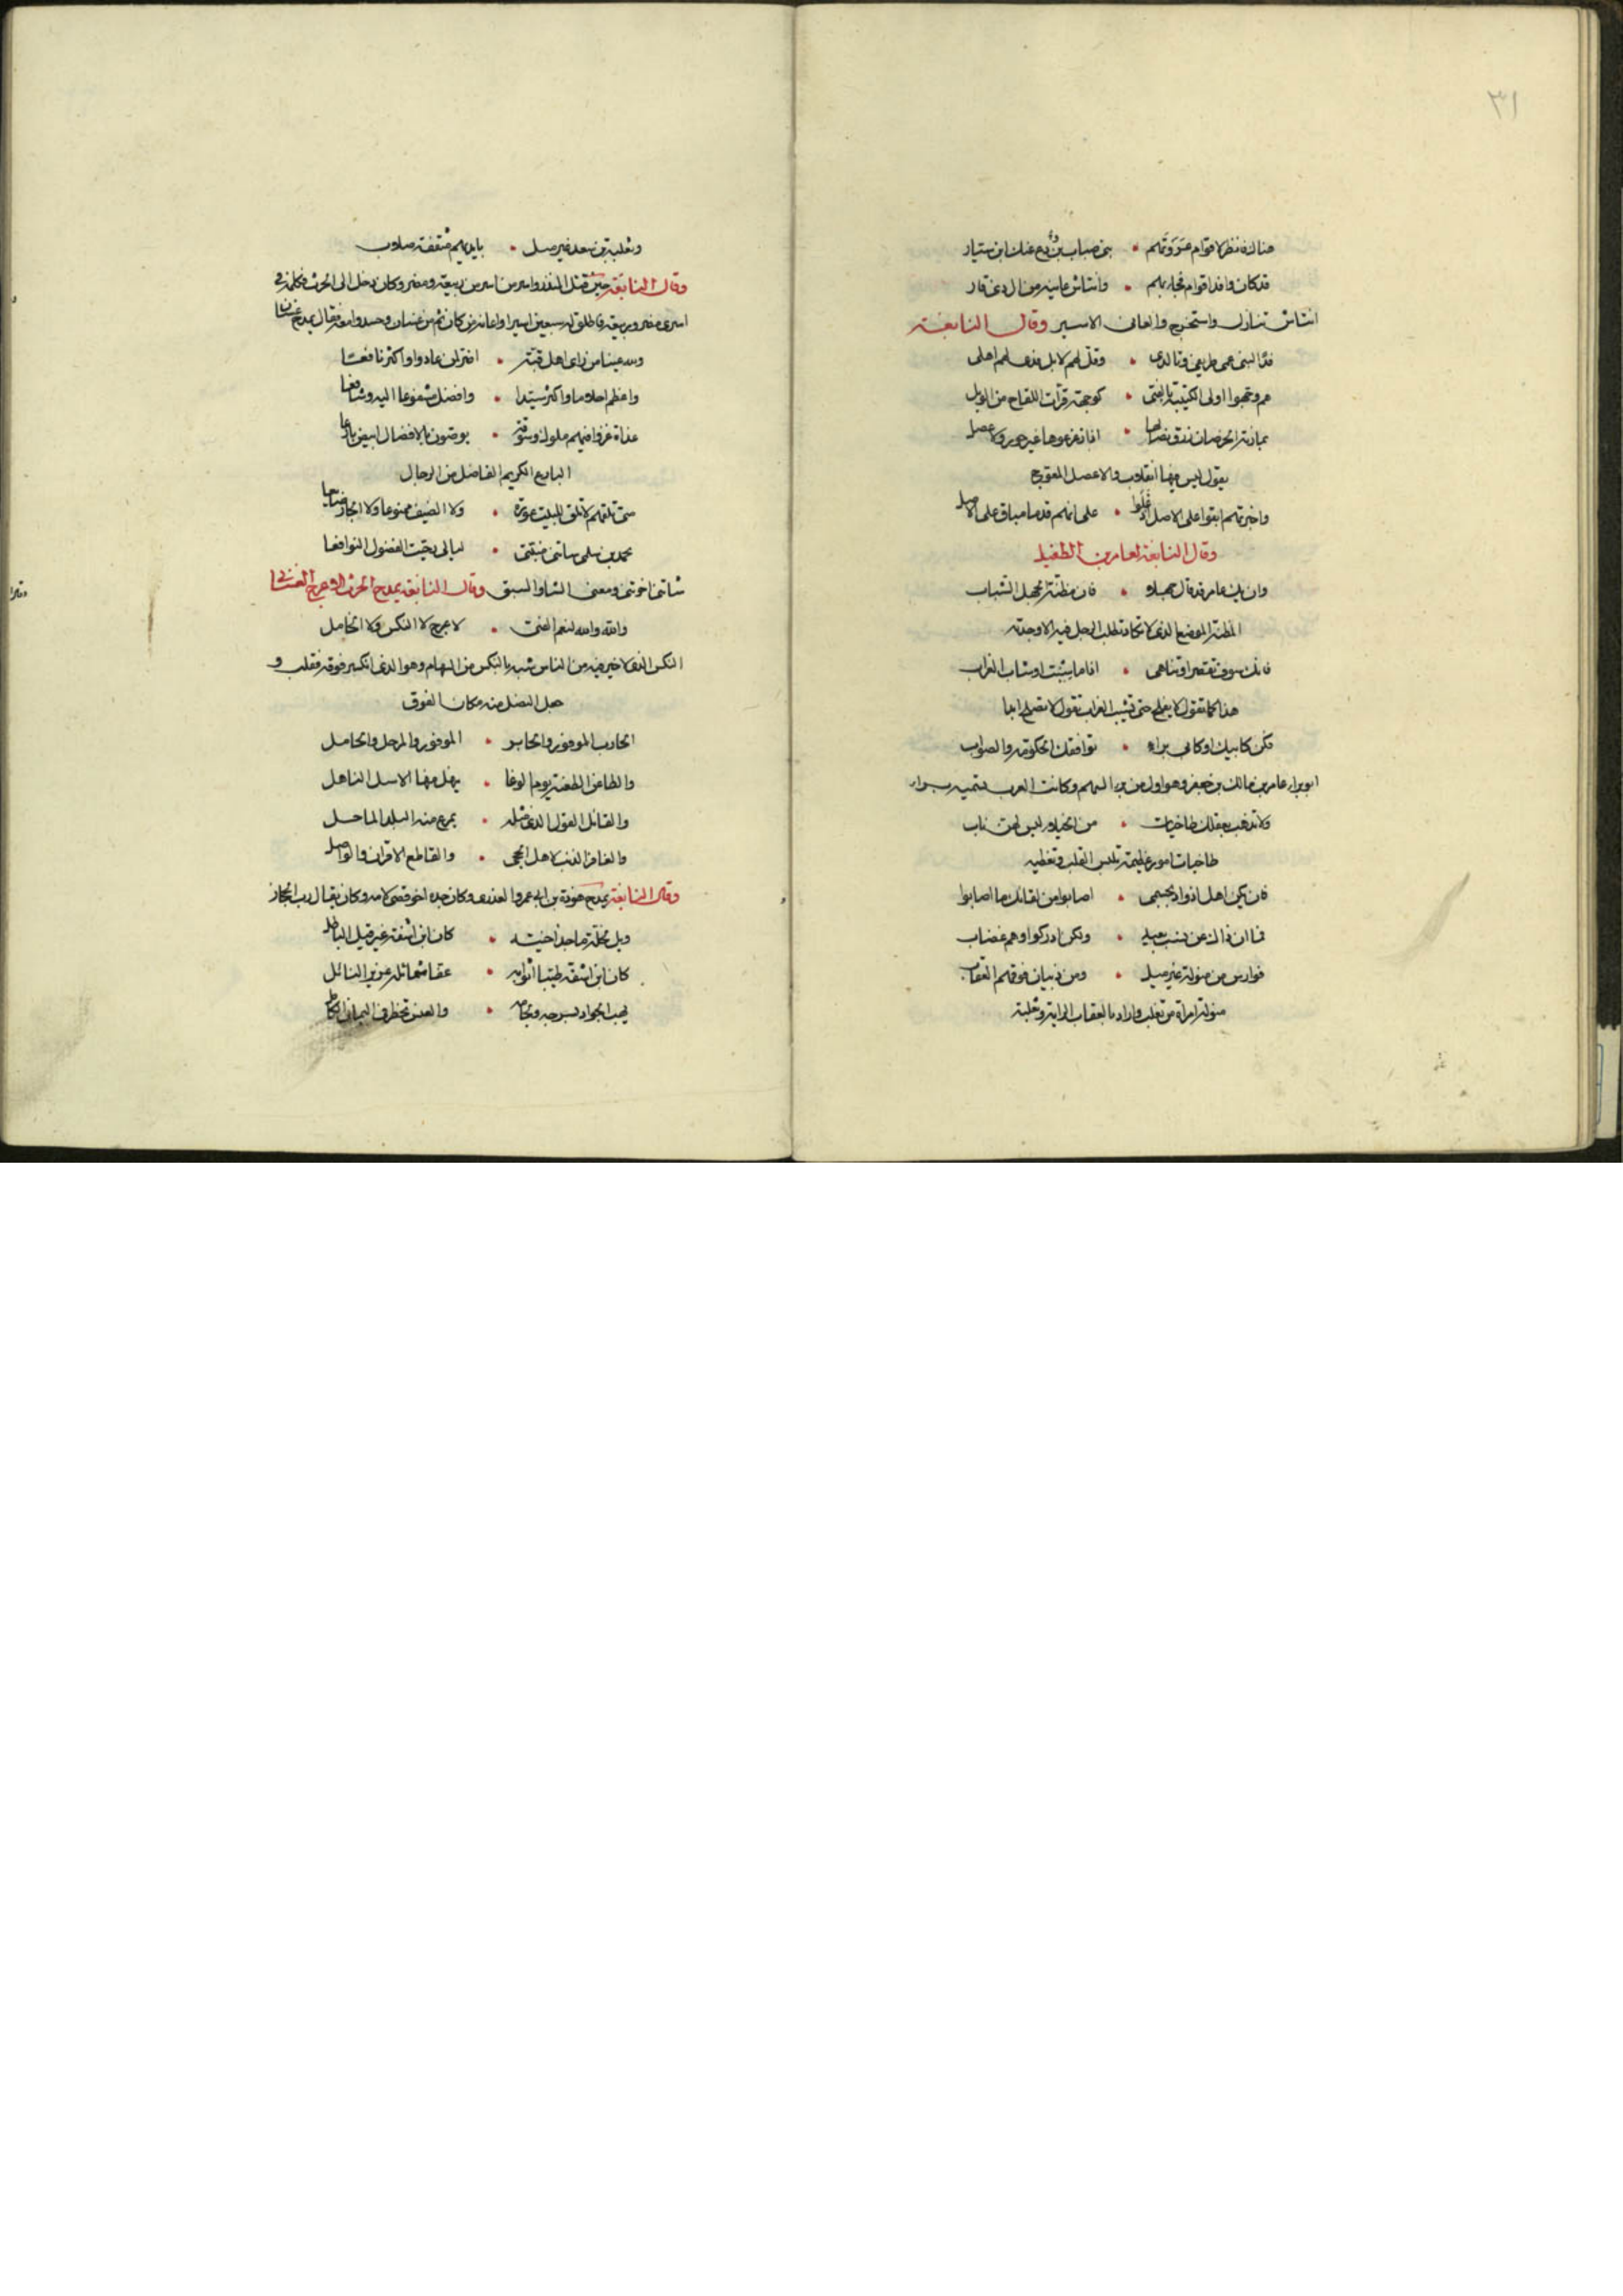 ٣١
هناك فانظر لاقوام عررتهم • بنى ضباب بن ودع عنك ابن سيار
قد كان وافد اقوام فجاء بهم • وانتاش عانيه من ال ذى قار
انتاش تناول واستخرج والعانى الاسير وقال النابغة
فدا لبنى عمى طريفى وتالدى • وقل لهم لا بل فدى لهم اهلى
هم وجهوا اولى الكتيبة • كوجهة اللقاح من الوبل
اذا زعزعوها غير ولا عصل
يقول ليس فيها انقلاب والاعصل المعوج
واخبرتهم ابقوا على الاصل • على انهم قدما مباق على الاصل
وقال النابغة لعامر بن الطفيل
وان يك عامر قد قال جهلا • فان مظنة الجهل الشباب
المظنة الموضع الذى لا تكاد تطلب الرجل فيه الا وجدته
فانك سوف تقصر او تناهى • اذا ما شبت او شاب الغراب
هذا كما تقول لا يفلح حتى يشيب الغراب تقول لا تفلح ابدا
فكن كابيك او كابى براء • توافقك الحكومة والصواب
ابو براء عامر بن مالك بن جعفر وهو اول من السهم وكانت العرب تسميه
ولا تذهب بعقلك طاخيات • من الخيلاء ليس لهن باب
طاخيات امور عظيمة تلبس القلب وتغطيه
فان يكن اهل اذواد بحسمى • اصابوا من لقائك ما اصابوا
فما ان ذاك عن بعيد • ولكن ادركوا وهم غضاب
فوارس من منولة غير ميل • ومن ذبيان فوقهم العقاب
منولة امراة من تغلب واراد بالعقاب الراية وثعلبة
وثعلبة بن سعد غير ميل • بايديهم مثقفة صلاب
وقال النابغة حين قتل المنذر واسر من اسر من ربيعة ومضر وكان دخل الى الحرث فكلمه فى
اسرى مضر وربيعة فاطلق له سبعين اسيرا واعانه من كان ثم من غسان وحسدوا فقال يمدح غسان
ولله عينا من راى اهل قبة • اضر لمن عادوا واكثر نافعا
واعظم احلاما واكبر سيدا • وافضل مشفوعا اليه وشافعا
غداة غزوا فيهم ملوك وسوقة • يوصون بالافضال ابيض بارعا
البارع الكريم الفاضل من الرجال
متى تلقهم لا تلق للبيت عورة • ولا الضيف ممنوعا ولا الجار ضايعا
محمد بن سلمى
شاتنى اخوتنى ومعنى الشاو السبق وقال النابغة يمدح الحرث الاعرج الغسانى
والله والله لنعم الفتى • لاعرج لا النكس ولا الخامل
النكس الذى لا خير فيه من الناس شبه بالنكس من السهام وهو الذى انكسر فوقه فقلب و
جعل النصل منه مكان الفوق
الحارب الموفور والجابر • الموفور والمرجل والحامل
والطاعن الطعنة يوم الوغا • ينهل منها الاسل الناهل
والقائل القول الذى مثله • يمرع منه البلد الماحل
والغافر الذنب لاهل الحجى • والقاطع الاقران والواصل
وقال النابغة يمدح هوذة بن ابى عمرو العذرى وكان جده اخو قصى لامه وكان يقال رب الحجاز
كان ابن اشفة غير قيل الباطل
كان ابن اشفة طيبا اثوابه • عفا شمائله عزيز النائل
يهب الجواد بسرجه ولجامه • والعنس تخطر